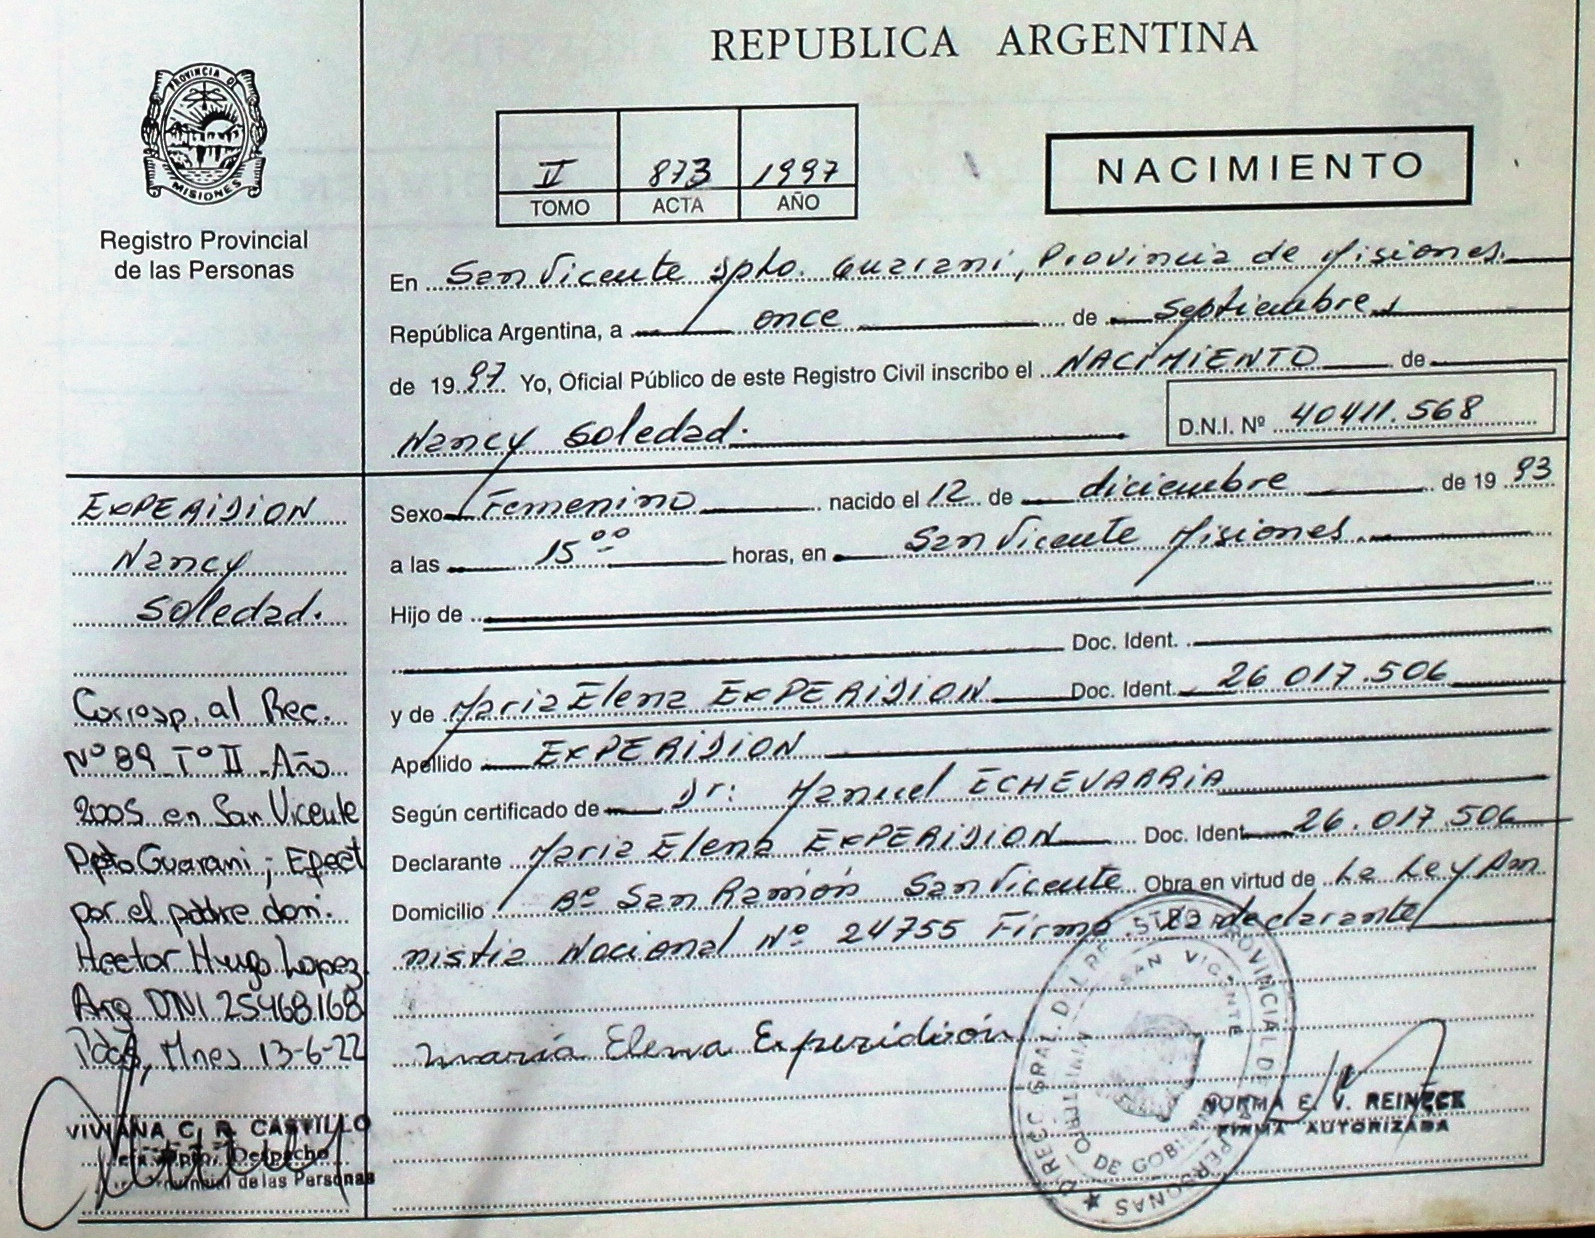 REPUBLICA ARGENTINA
PROVINCIA D
MISIONES
Registro Provincial
de las Personas
II 873 1997
TOMO ACTA AÑO
NACIMIENTO
En San Vicente Dpto. Guarani, Provincia de Misiones.
República Argentina, a once de Septiembre
de 1997 Yo, Oficial Público de este Registro Civil inscribo el NACIMIENTO de
Nancy Soledad.
D.N.I. Nº 40411.568
Sexo Femenino nacido el 12 de diciembre de 1993
a las 15 00 horas, en San Vicente Misiones.
Hijo de
Doc. Ident.
y de Maria Elena EXPERIDION Doc. Ident. 26 017.506
Apellido EXPERIDION
Según certificado de Dr: Manuel ECHEVARRIA
Declarante Maria Elena EXPERIDION Doc. Ident. 26.017.506
Domicilio Bº San Ramión San Vicente Obra en virtud de La Ley Am
nistia Nacional Nº 24755 Firma la declarante
maría Elena Experidión
EXPERIDION
Nancy
Soledad.
Corresp. al Rec.
Nº 89 Tº II Año
2005 en San Vicente
Dpto Guarani; Efect
por el padre don:
Hector Hugo Lopez
Arg DNI 25468.168
Pdas, Mnes 13-6-22
VIVIANA C. R. CASTILLO
Dpto. Despacho
Provincial de las Personas
SAN VICENTE
NORMA E. V. REINECK
FIRMA AUTORIZADA